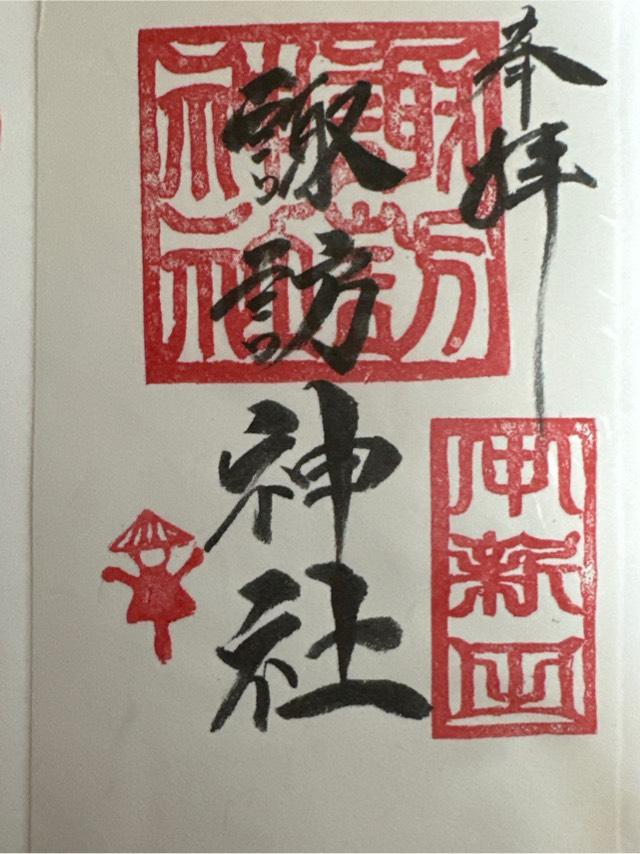 奉拝
諏訪神社
諏訪
神社
中新田